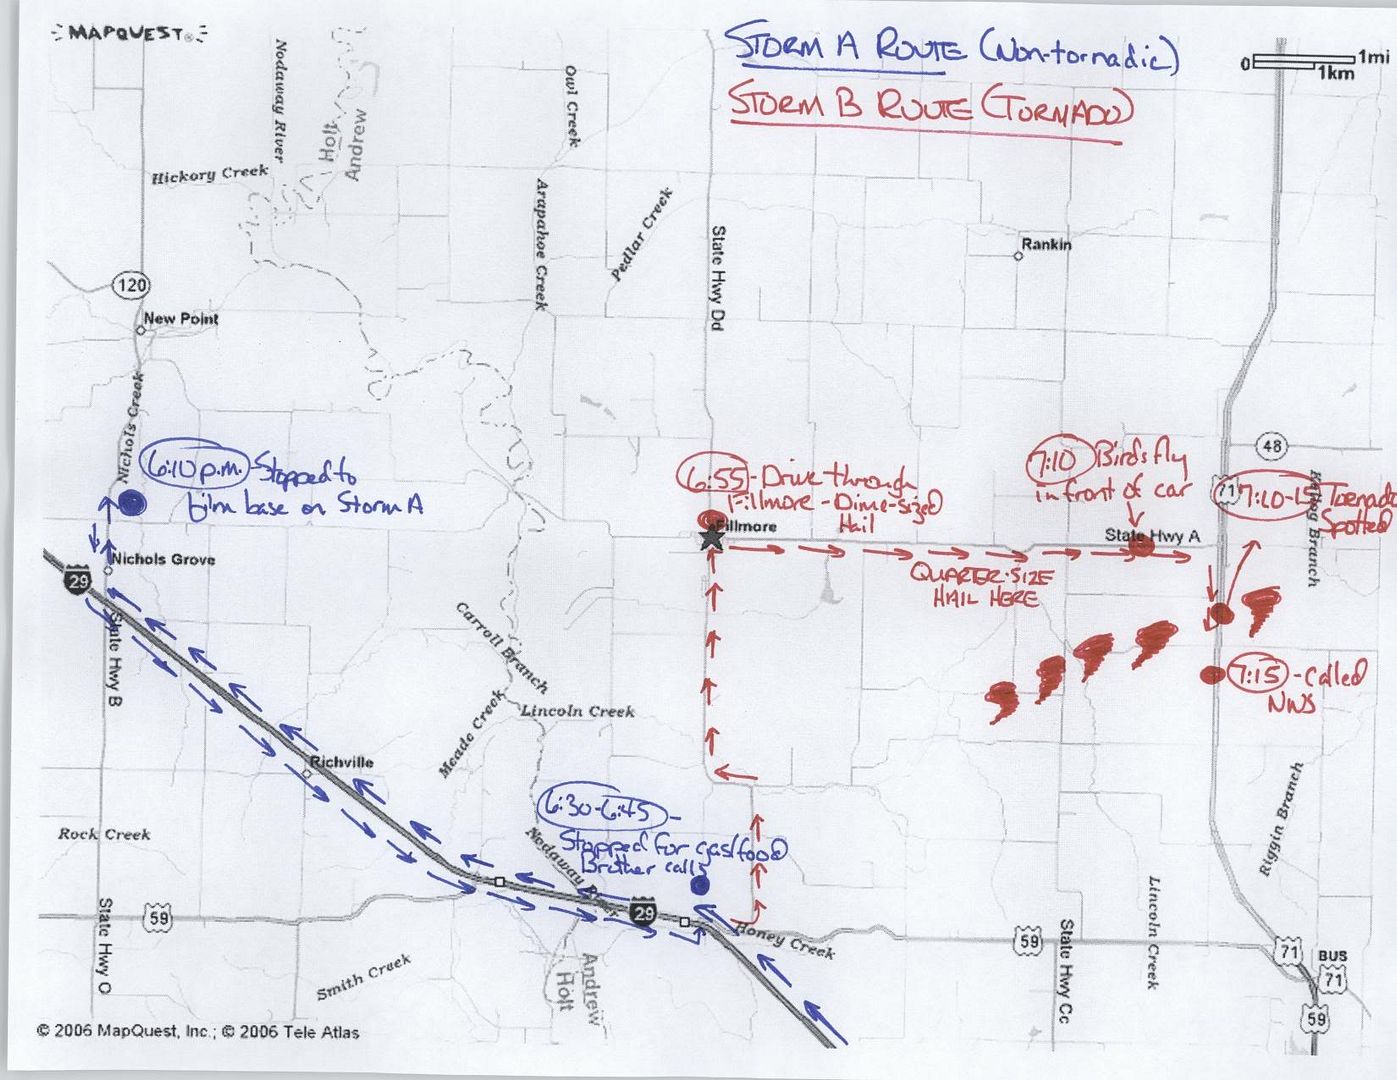 MAPQUEST®
STORM A ROUTE (Non-tornadic)
STORM B ROUTE (TORNADO)
0 1mi
1km
Nodaway River
Holt
Andrew
Owl Creek
Hickory Creek
Arapahoe Creek
Pedlar Creek
State Hwy Dd
Rankin
120
New Point
Nichols Creek
6:10 p.m. - Stopped to
film base on Storm A
6:55 - Drive through
Fillmore - Dime-sized
Hail
Fillmore
7:10 Birds fly
in front of car
State Hwy A
48
71
7:10-15 Tornado
Spotted
Branch
QUARTER-SIZE
HAIL HERE
Nichols Grove
29
State Hwy B
Carroll Branch
Meade Creek
Lincoln Creek
7:15 - Called
NWS
Richville
6:30-6:45 -
Stopped for gas/food
Brother calls
Rock Creek
Nodaway River
29
Riggin Branch
59
State Hwy O
Honey Creek
Smith Creek
Andrew
Holt
59
State Hwy Cc
Lincoln Creek
71
BUS
71
59
© 2006 MapQuest, Inc.; © 2006 Tele Atlas